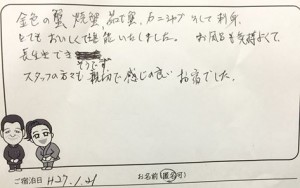 金色の蟹、焼蟹、茹で蟹、カニシャブそして刺身、
とてもおいしくて堪能いたしました。 お風呂も気持よくて、
長生きでき そうです
スタッフの方々も親切で感じの良いお宿でした。
ご宿泊日 H27.1.21
お名前(匿名可)